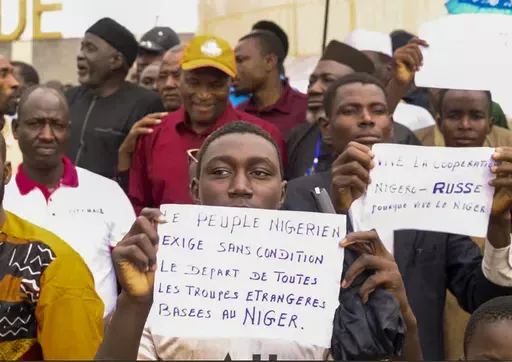 LE PEUPLE NIGERIEN
EXIGE SANS CONDITION
LE DEPART DE TOUTES
LES TROUPES ETRANGERES
BASEES AU NIGER.
VIVE LA COOPERATION
NIGERO-RUSSE
POURQUE VIVE LE NIGER